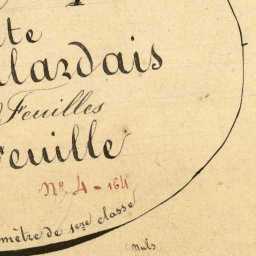 te
lardais
Feuilles
Feuille
N° 4 - 164
mètre de 1ère classe
Nuls